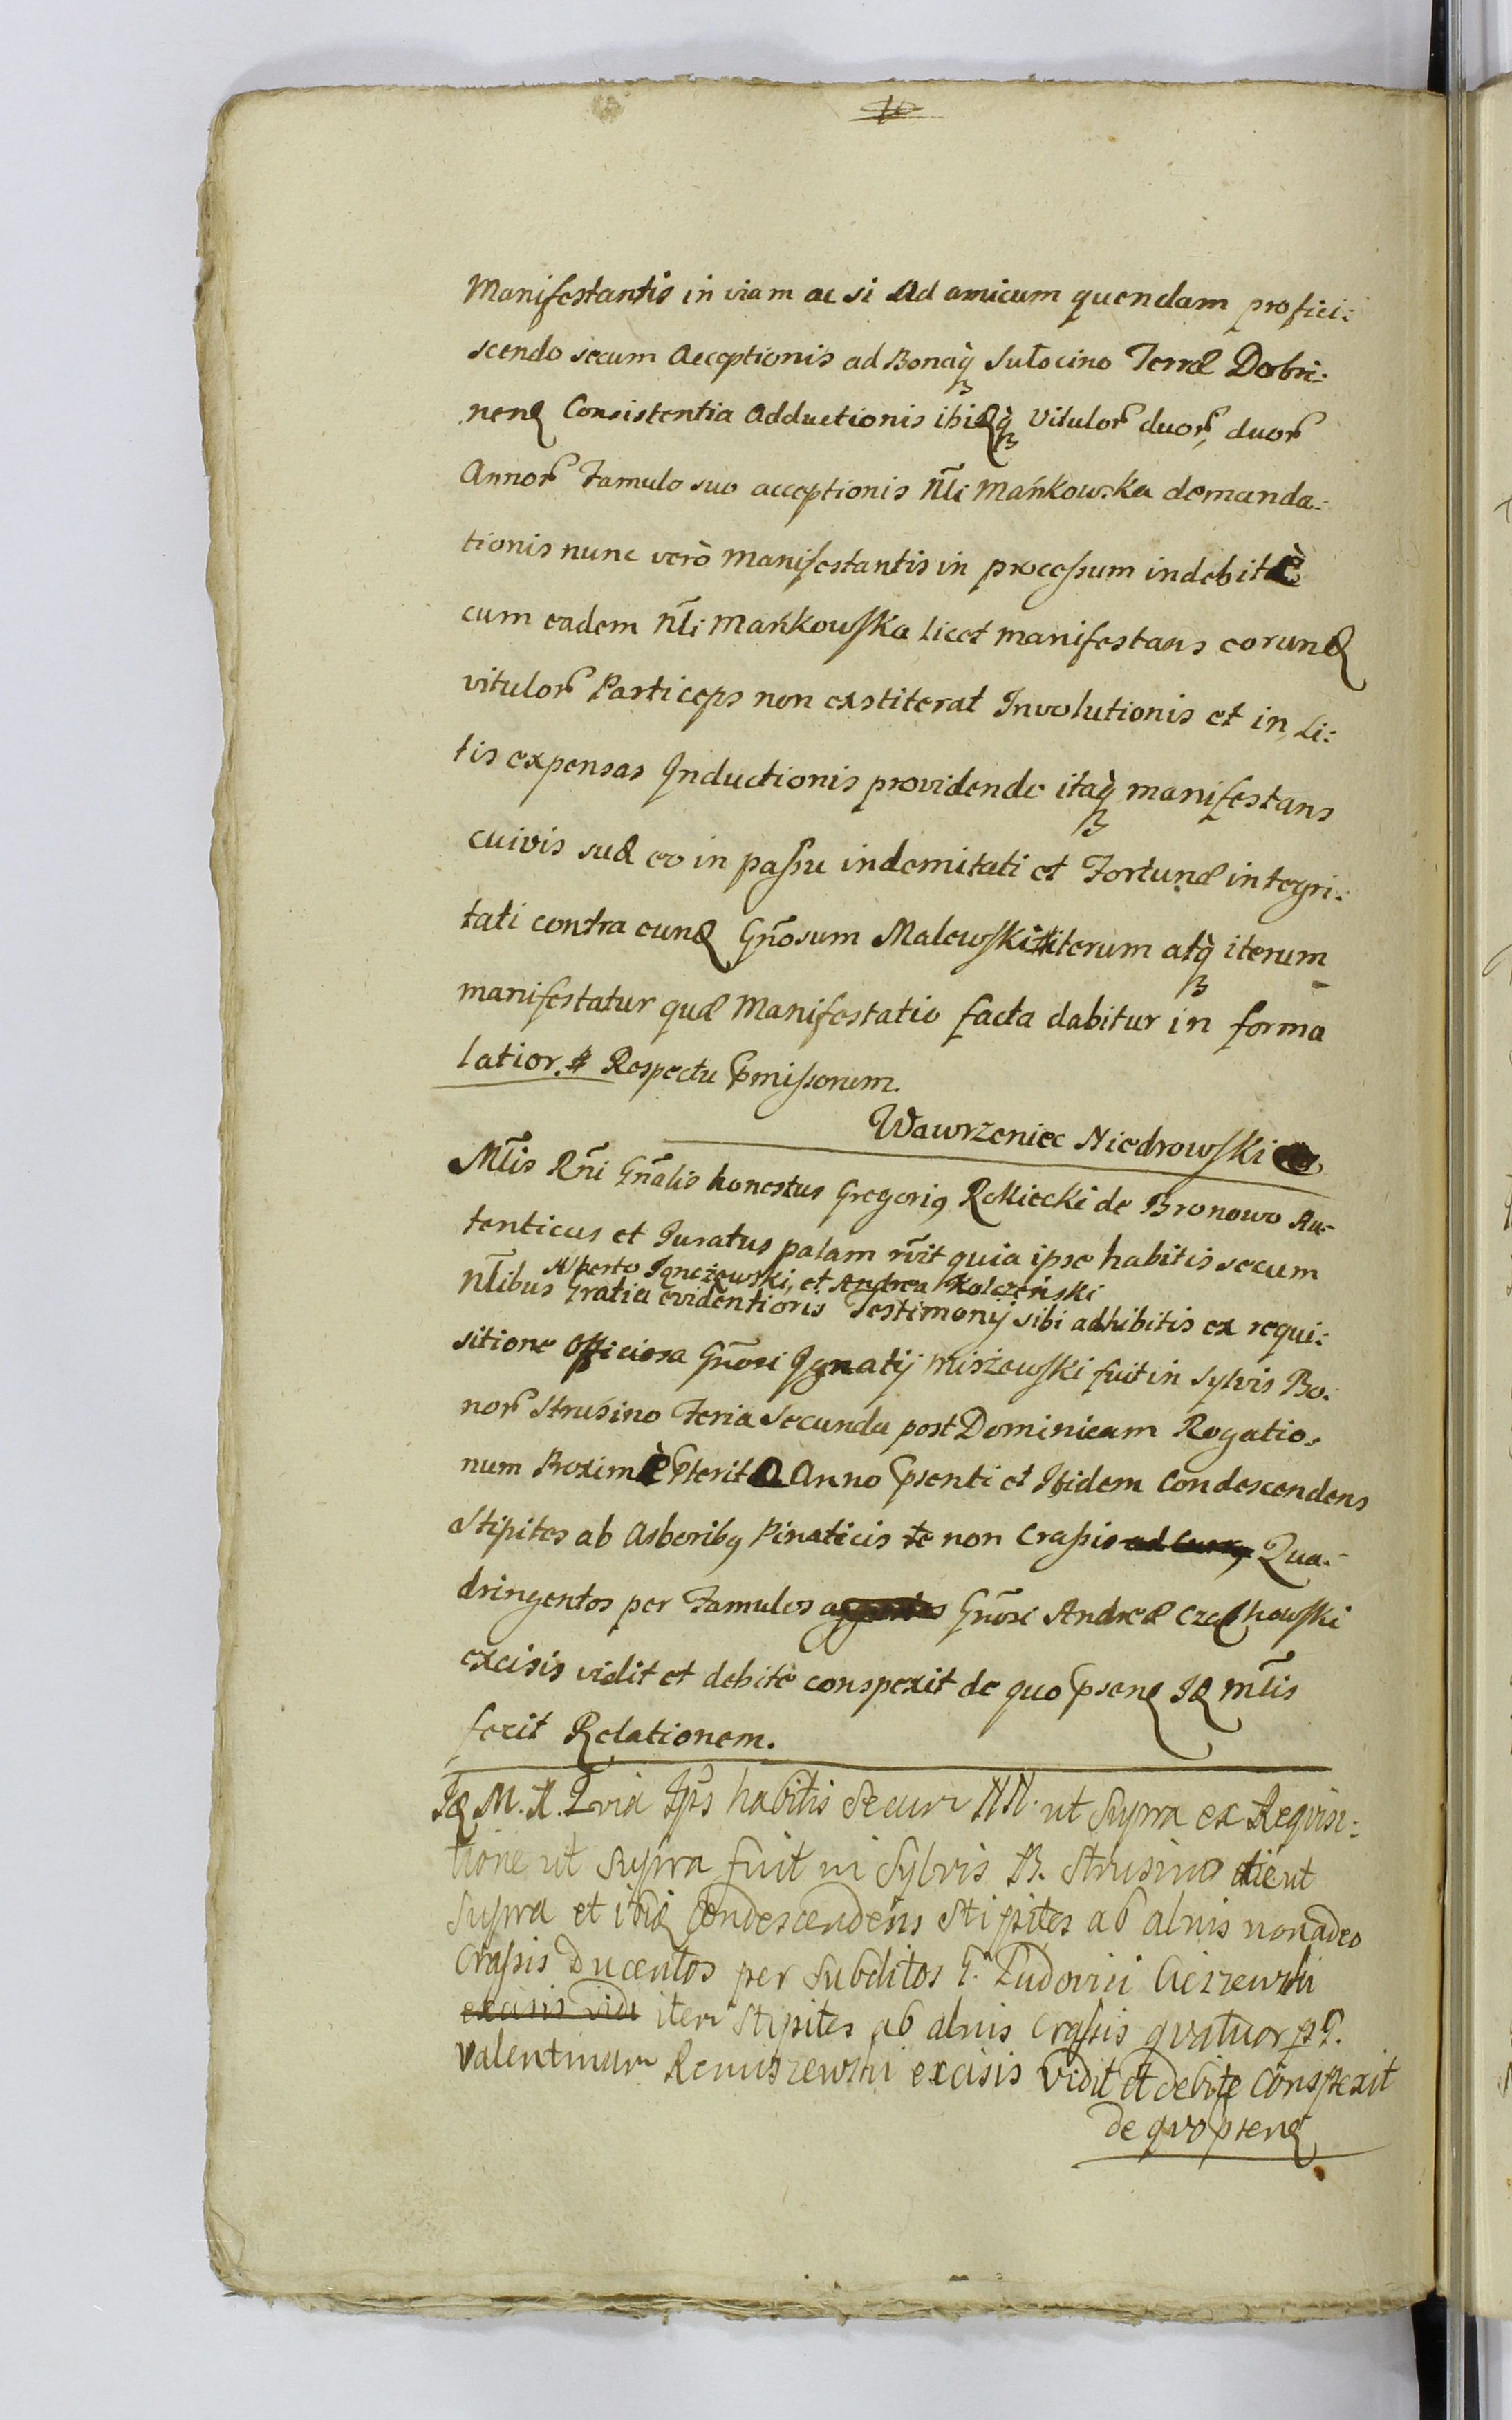 Manifestantis in viam ac si Ad amicum quendam profici:
scendo secum Acceptionis ad Bonaq̀ Sułocino Terræ Dobri:
nenꝗ Consistentia Adductionis ibiꝗq̀ Vitulor̃ duor̃, duor̃
Annor̃ Famulo suo acceptionis Nl̃i Mańkowska demanda:
tionis nunc verò Manifestantis in processum indebitè
cum eadem Nl̃i Mańkowska licet manifestans eorunꝗ
vitulor̃ Particeps non exstiterat Involutionis et in Li:
tis expensas Inductionis providendo itaq̀ manifestans
cuivis suæ eo in passu indemitati et Fortunæ integri:
tati contra eunꝗ Gñosum Malewski iterum atq̀ iterum
manifestatur quæ Manifestatio facta dabitur in forma
latior. Respectu p̃missorum.
Wawrzeniec Niedrowski
Ml̃is Rñi Gñalis honestus Gregorią Rokiecki de Bronowo Au-
tenticus et Juratus palam rñvit quia ipse habitis secum
Alberto Ignczewski, et Andrea Kolczeński
Nl̃ibus Gratia evidentioris Testimonij sibi adhibitis ex requi:
sitione Officiosa Gñosi Ignatij Miszewski fuit in Sylvis Bo:
nor̃ Strusino Feria Secunda post Dominicam Rogatio:
num Proximè p̃terita Anno p̃senti et Ibidem Condescendens
Stipites ab Arboribꝗ Pinaticis non Crassis Qua:
dringentos per Famulos Gñosi Andreæ Czachowski
excisis vidit et debitè conspexit de quo p̃senꝗ Iꝗ Ml̃is
fecit Relationem.
Iꝗ M. R. Qvia Ips habitis Secum NN. ut Supra ex Reqvisi:
tione ut Supra fuit in Sylvis B. Strusino die ut
Supra et ibiꝗ Condescendens Stipites ab alnis non adeo
Crassis Ducentos per Subditos G. Ludovici Cieszewski
excisis vidi item Stipites ab alnis Crassis qvatuor p G.
Valentinum Remiszewski excisis Vidit et debite Conspexit
de qvo psenꝗ